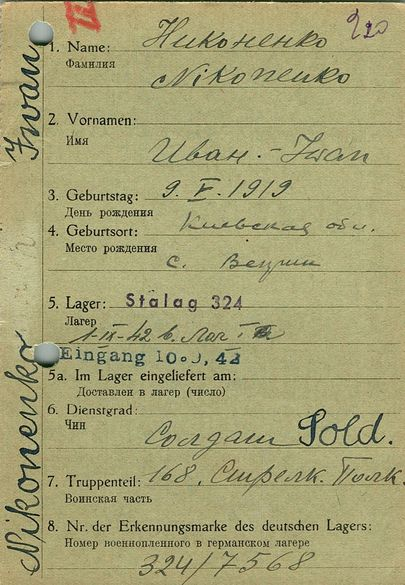 920
1. Name: Никоненко
Фамилия
Nikonenko
2. Vornamen:
Имя
Иван.-Iwan
3. Geburtstag: 9. V. 1919
День рождения
4. Geburtsort: Киевская обл.
Место рождения
с.
5. Lager: Stalag 324
Лагер
1-IX-42
Eingang 10.9.42
5a. Im Lager eingeliefert am:
Доставлен в лагер (число)
6. Dienstgrad:
Чин
Солдат Sold.
7. Truppenteil: 168. Стрелк. Полк.
Воинская часть
8. Nr. der Erkennungsmarke des deutschen Lagers:
Номер военнопленного в германском лагере
324/7568
Nikonenko Iwan